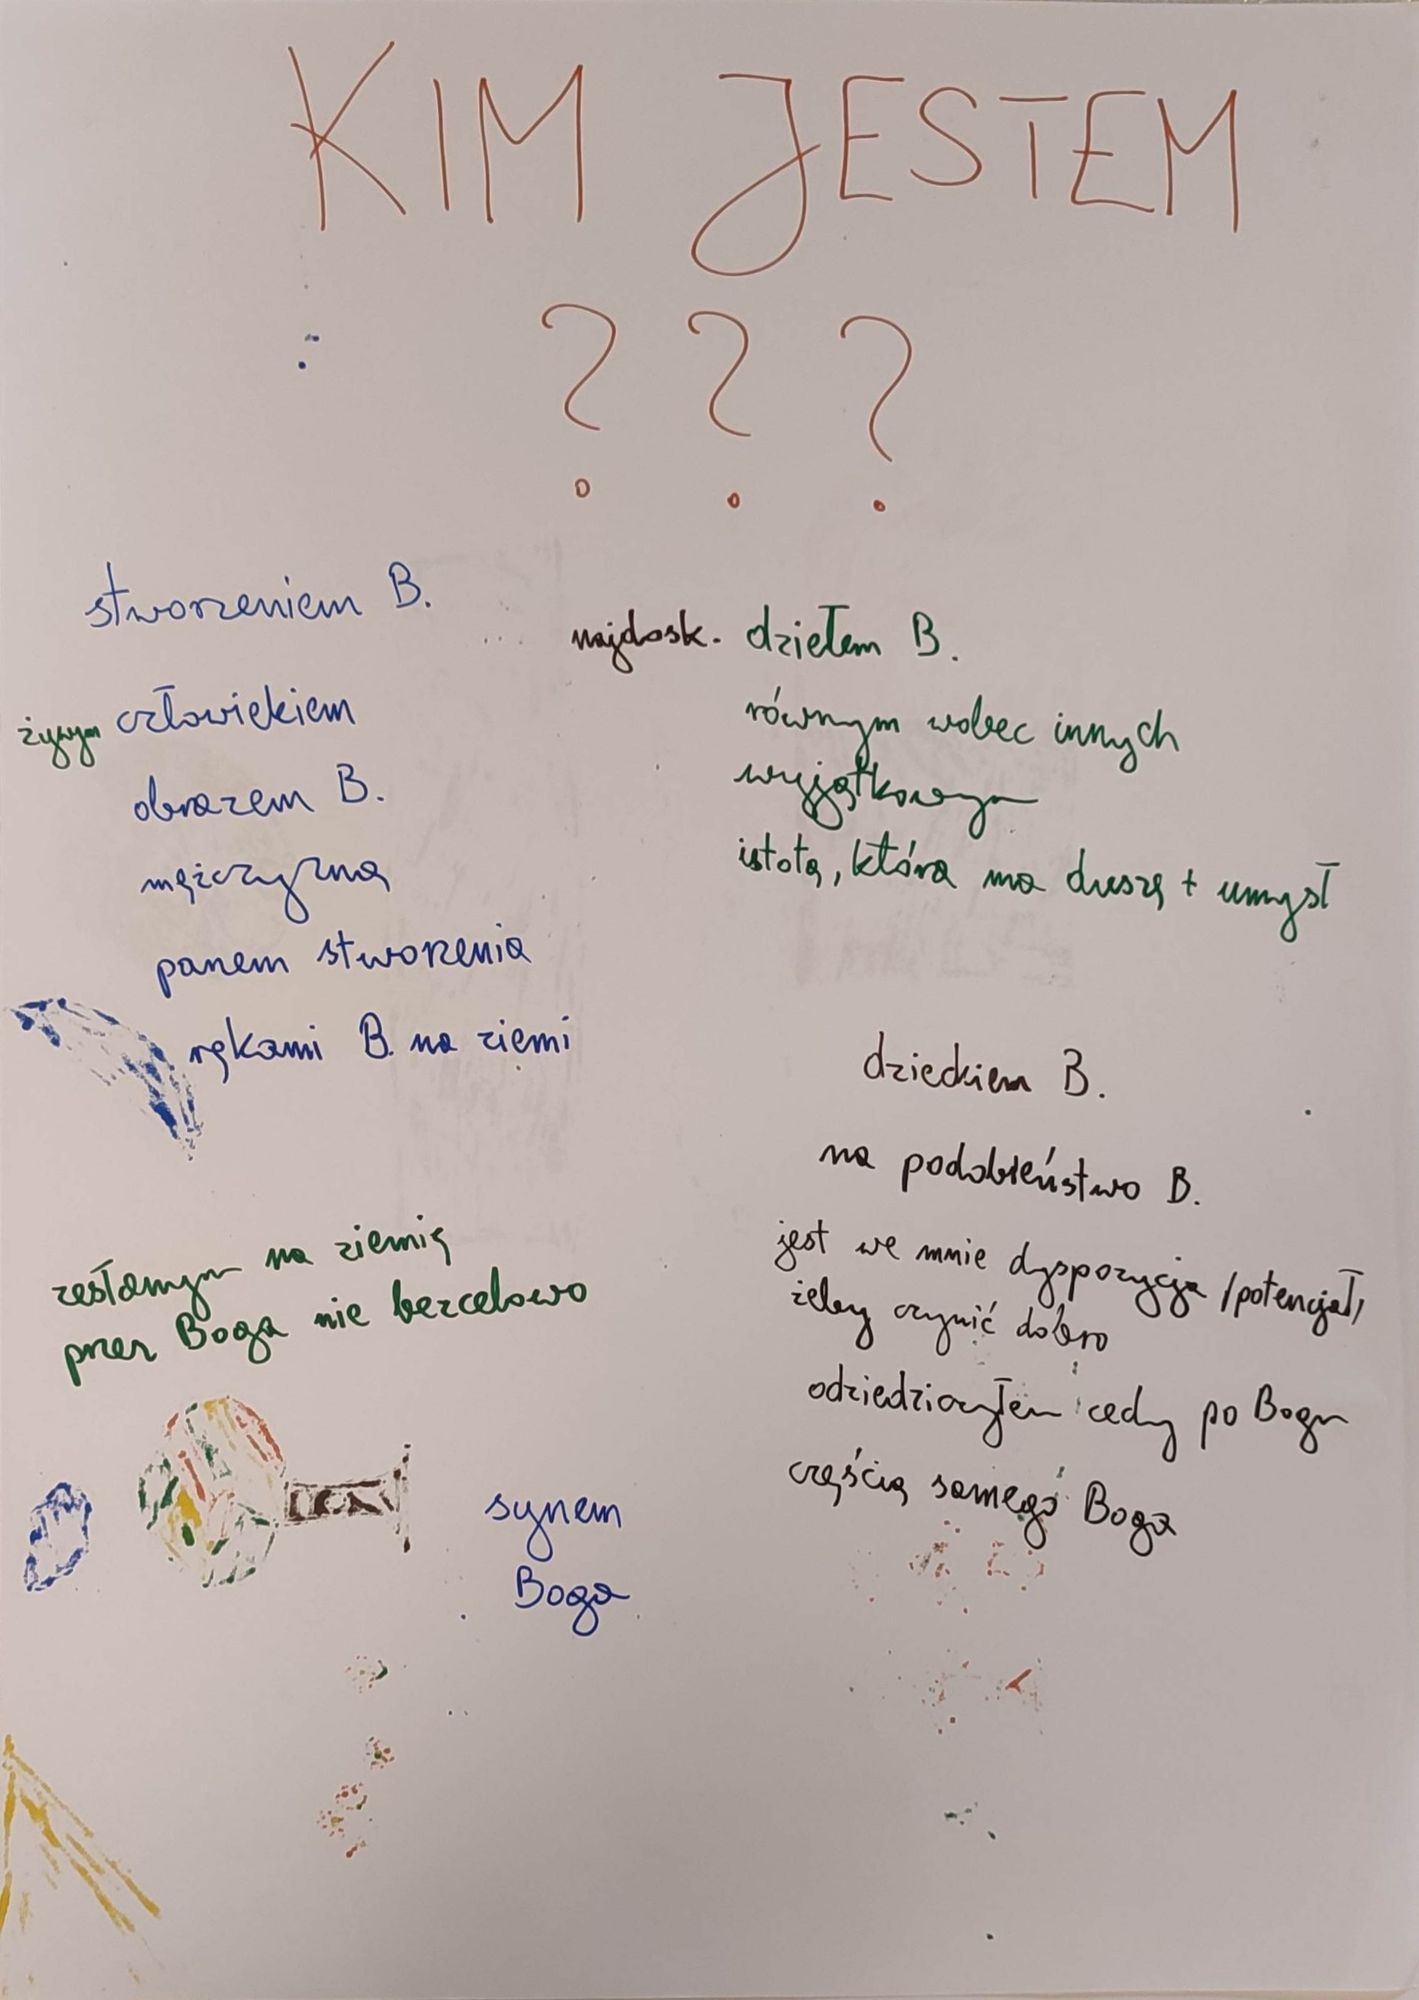 KIM JESTEM
???
stworzeniem B.
żywym człowiekiem
obrazem B.
mężczyzną
panem stworzenia
rękami B. na ziemi
zesłanym na ziemię
przez Boga nie bezcelowo
synem
Boga
najdosk. dziełem B.
równym wobec innych
wyjątkowym
istotą, która ma duszę + umysł
dzieckiem B.
na podobieństwo B.
jest we mnie dyspozycja /potencjał/
żeby czynić dobro
odziedziczyłem cechy po Bogu
częścią samego Boga